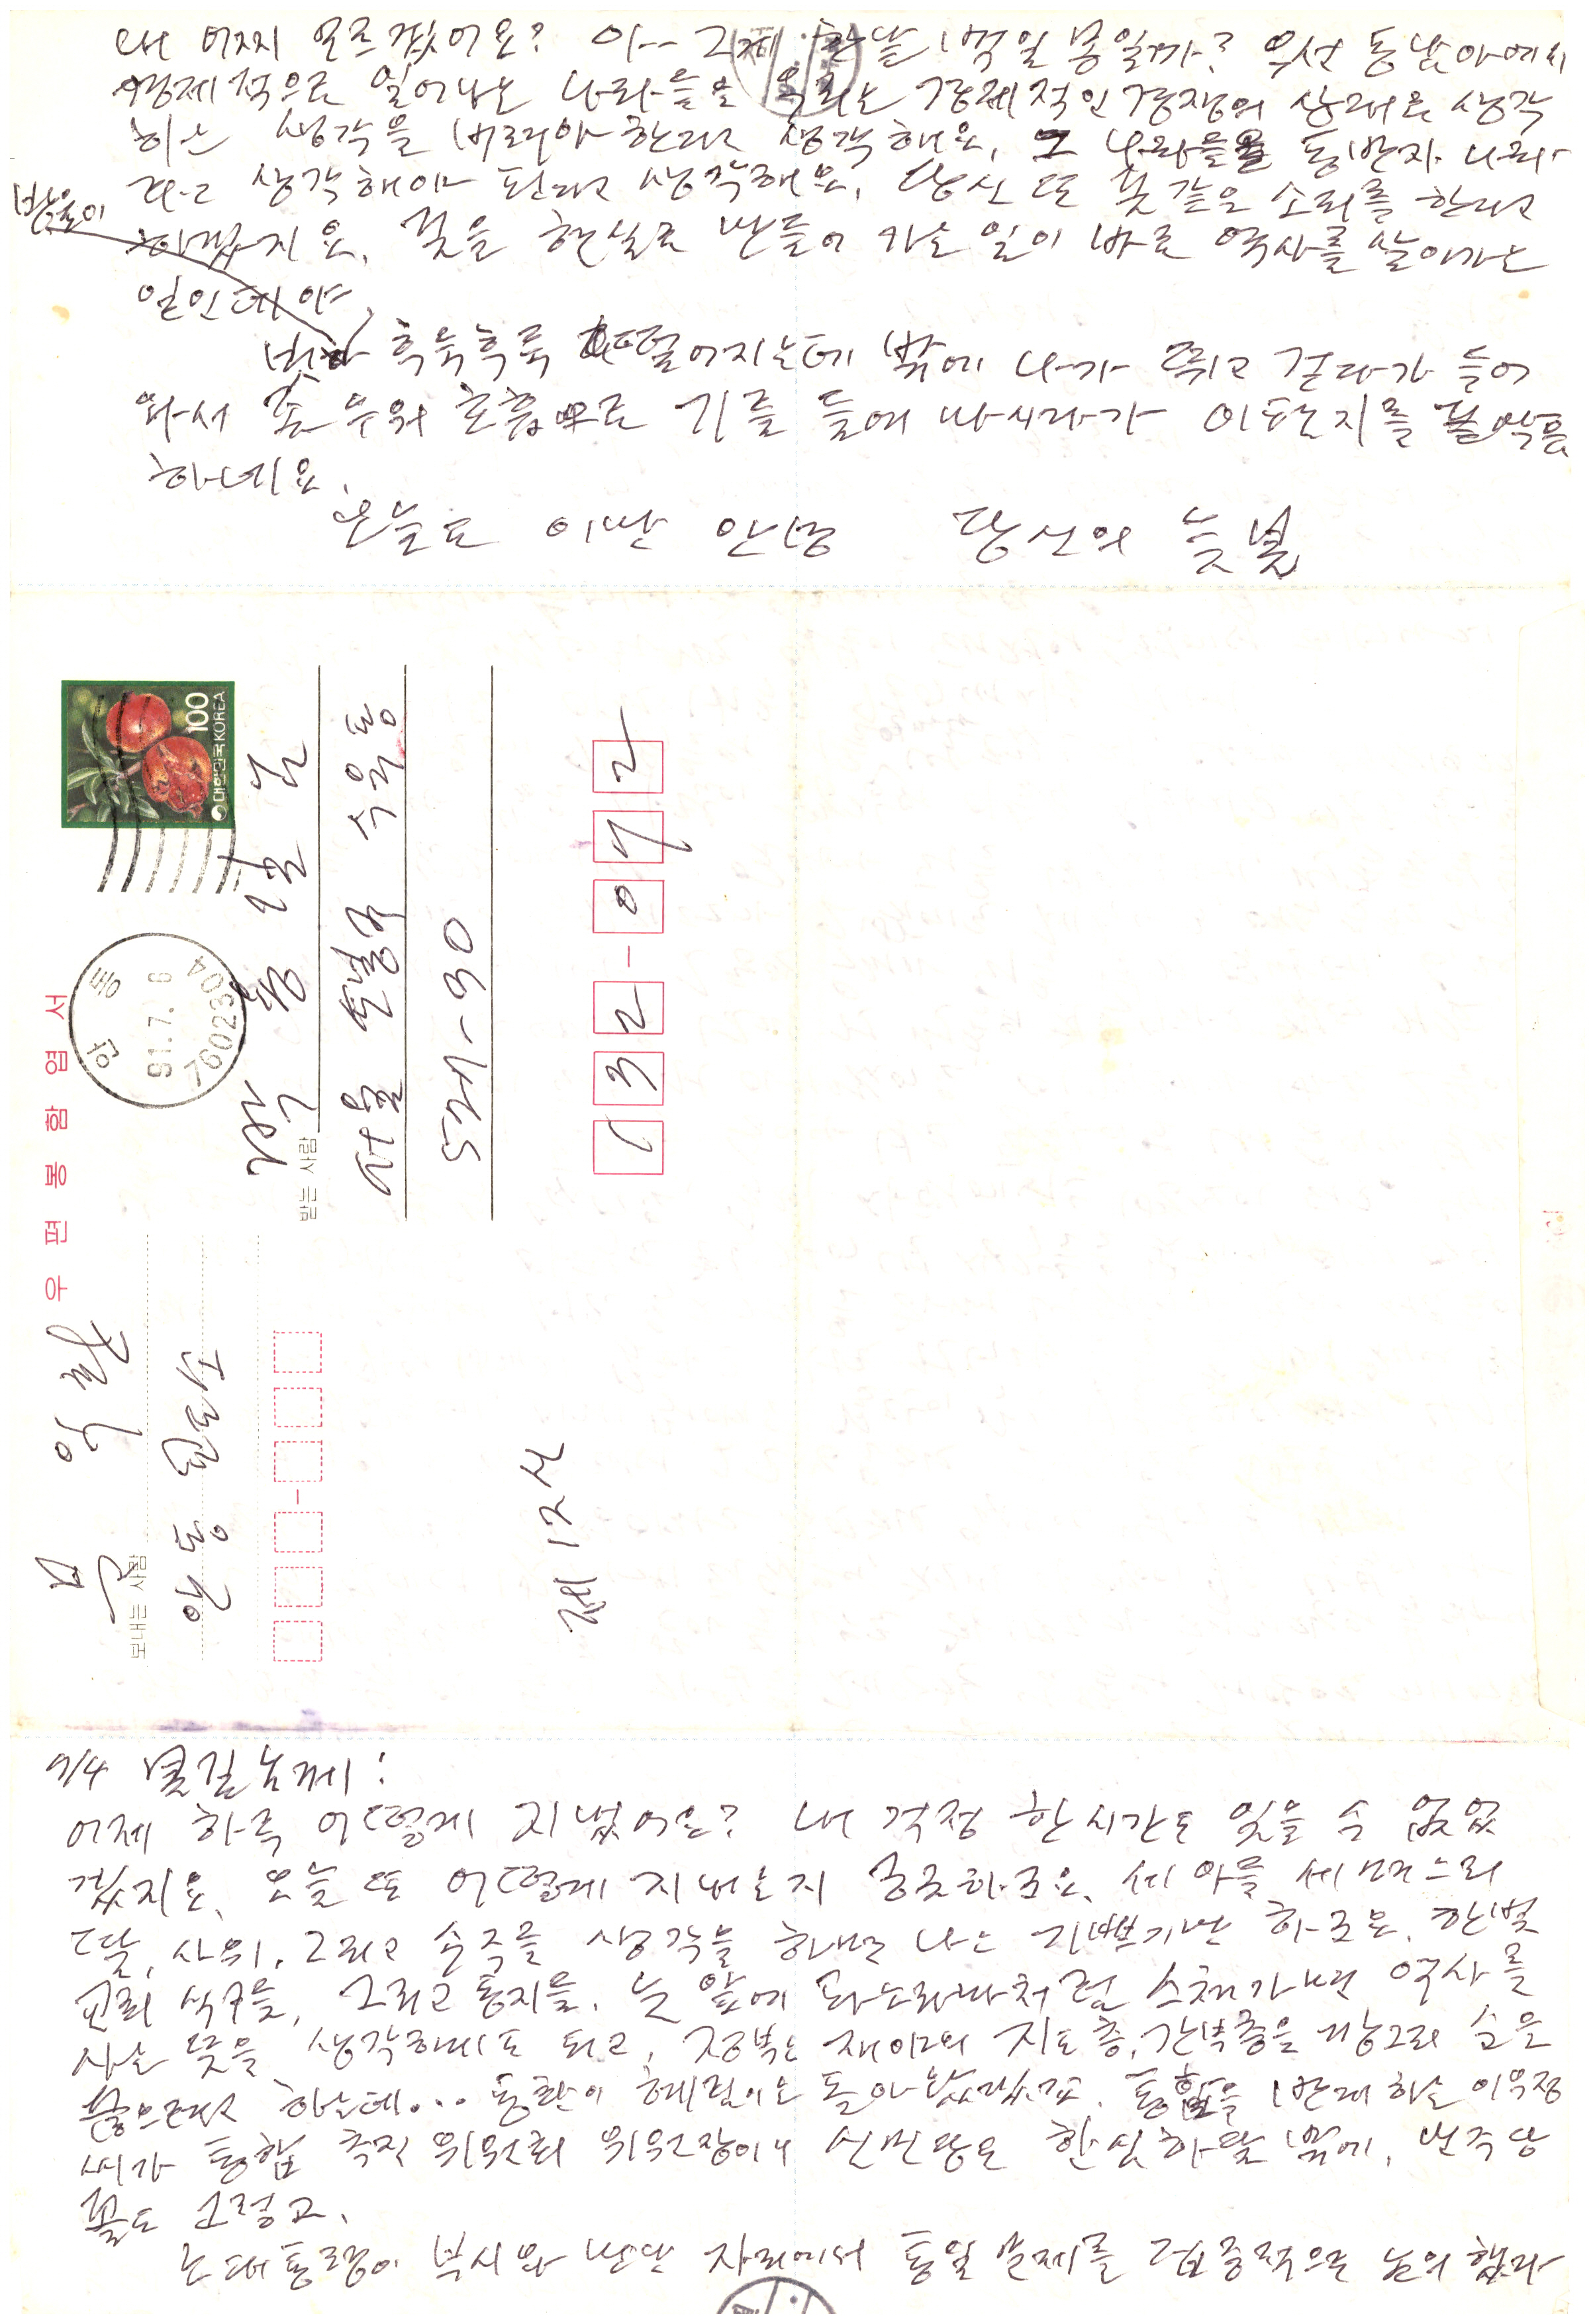 내 어찌 모르겠어요? 이-- 그게 한달 벽일 통일까? 우선 동남아에서
경제적으로 일어나는 나라들을 우리는 경제적인 경쟁의 상대로 생각
하는 생각을 버려야 한다고 생각해요. 그 나라들을 동반자 나라
라고 생각해야 된다고 생각해요. 당신 또 꿈 같은 소리를 한다고
하겠지요. 꿈을 현실로 만들어 가는 일이 바로 역사를 살아가는
일인데야.
밤올이
비가 후둑후둑 떨어지는데 밖에 나가 뛰고 걷다가 들어
와서 호흡으로 기를 들여 마시다가 이 편지를
하네요.
오늘도 이만 안녕 당신의 늦봄
대한민국 KOREA
100
안동
91.7.6
7602304
우편봉함엽서
받는 사람
박용길 님
서울 도봉구 수유동
527-30
132-072
보내는 사람
문
안동
제12신
7/4 봄길님께:
어제 하루 어떻게 지냈어요? 내 걱정 한시간도 잊을 수 없었
겠지요. 오늘 또 어떻게 지내는지 궁금하군요. 세 아들 세 며느리
딸, 사위, 그리고 손주들 생각을 하면 나는 기쁘기만 하군요. 한빛
교회 식구들, 그리고 동지들. 눈 앞에 파노라마처럼 스쳐가면 역사를
사는 뜻을 생각하게도 되고, 정부는 재야의 지도층, 간부층을 깡그리 숨을
끊으려고 하는데... 통한이 혜림이는 돌아왔겠고. 통합을 반대하는 이우정
씨가 통합 추진 위원회 위원장이니 신민당은 한심하달 밖에, 민주당
꼴도 그렇고.
노대통령이 부시와 만난 자리에서 통일 문제를 집중적으로 논의했다